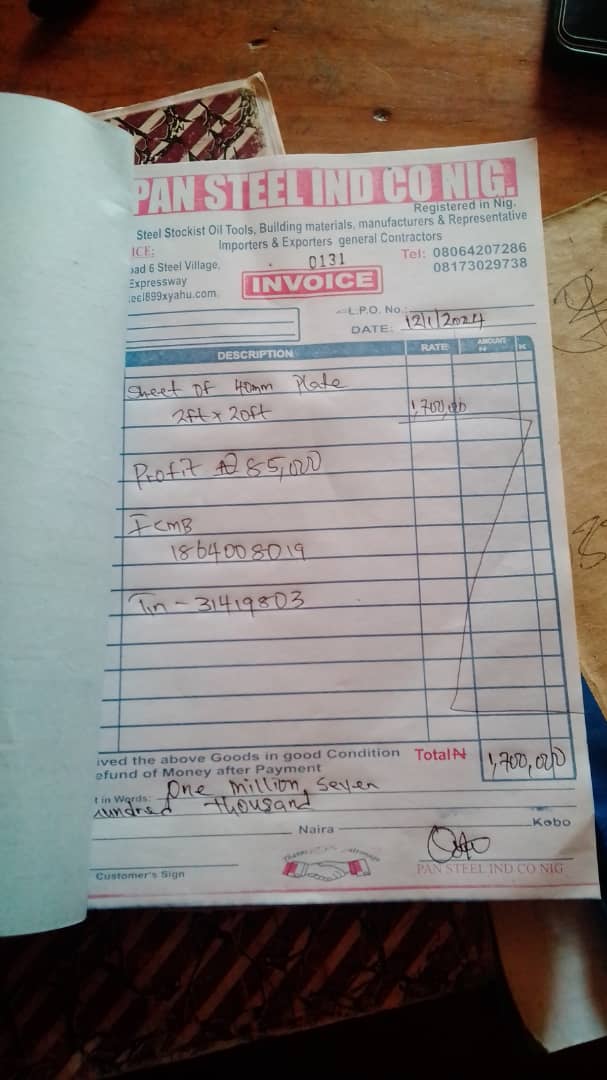 PAN STEEL IND CO NIG.
Registered in Nig.
Steel Stockist Oil Tools, Building materials, manufacturers & Representative
Importers & Exporters general Contractors
ICE:
oad 6 Steel Village,
Expressway
eel899xyahu.com.
0131
INVOICE
Tel: 08064207286
08173029738
L.P.O. No.
DATE: 12/1/2024
DESCRIPTION RATE AMOUNT ₦ K
Sheet of 40mm Plate
2ft x 20ft 1,700,000
Profit ₦ 85,000
FCMB
1864008019
Tin - 31419803
ived the above Goods in good Condition Total ₦ 1,700,000
efund of Money after Payment
t in Words: One million, Seven
hundred thousand
Naira Kobo
Customer's Sign
PAN STEEL IND CO NIG